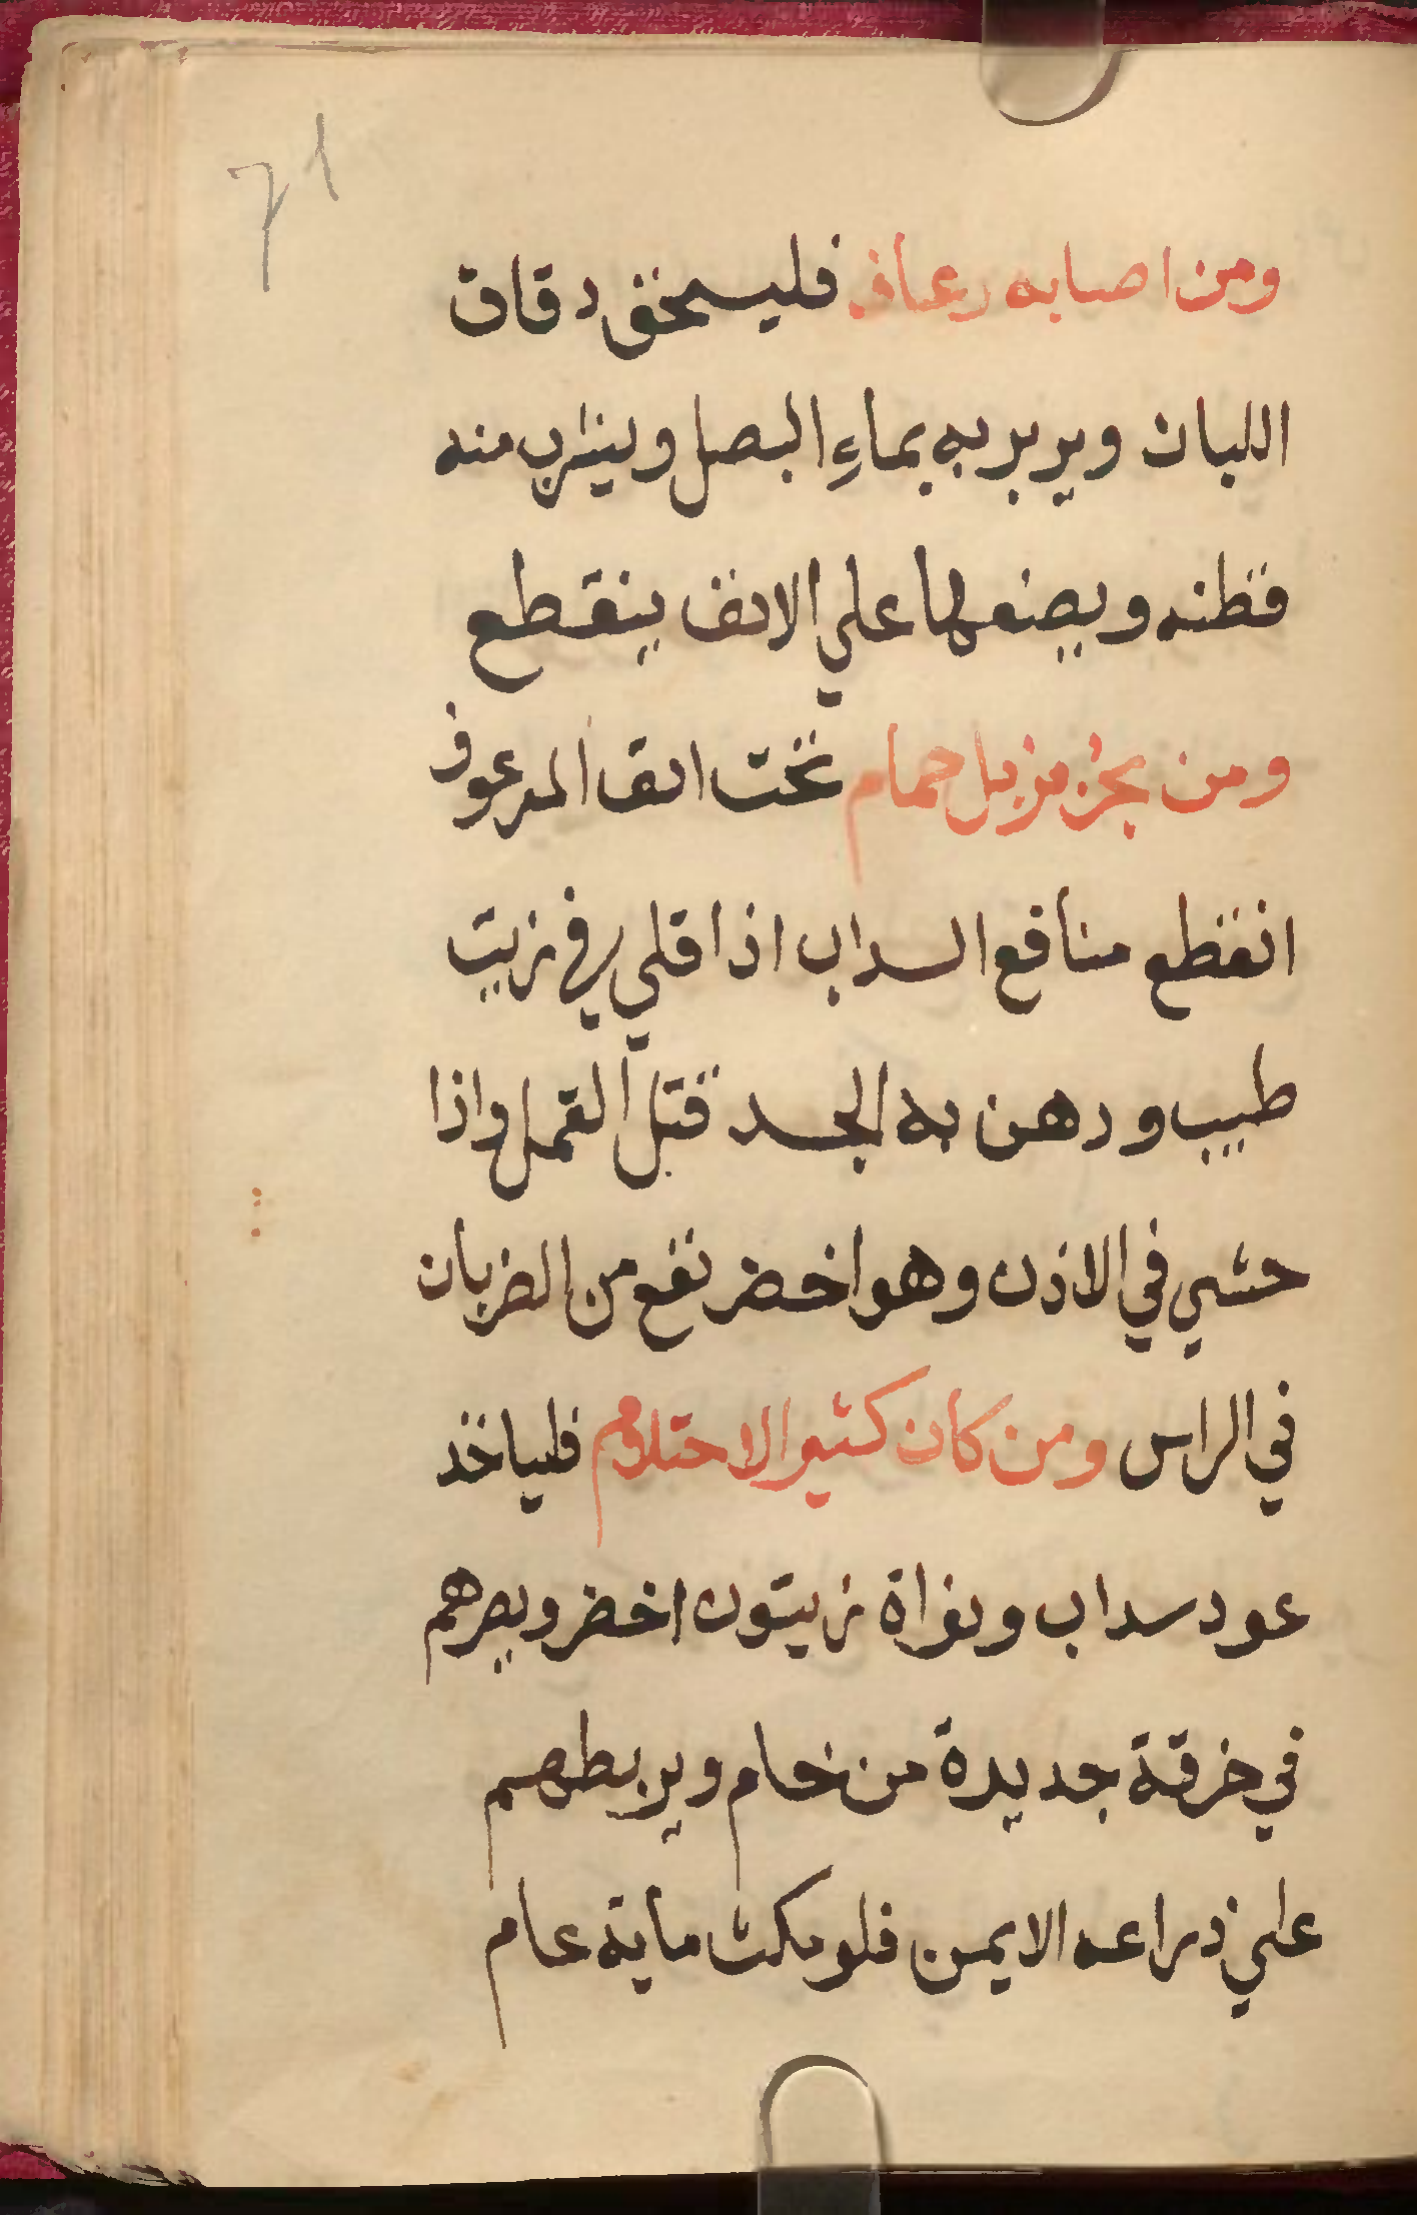 71
ومن اصابه رعاف فليسحق دقاق
اللبان ويربربه بماءِ البصل ويشرب منه
قطنه ويضعها علي الانف ينقطع
ومن بخر بزبل حمام تحت انف المرعوف
انقطع منافع السداب اذا قلي في زيت
طيب ودهن به الجسد قتل القمل واذا
حشي في الاذن وهو اخضر نفع من الضربان
في الراس ومن كان كثير الاحتلام فلياخذ
عود سداب ونواة زيتون اخضر ويصرهم
في خرقة جديدة من خام ويربطهم
علي ذراعه الايمن فلو مكث ماية عام